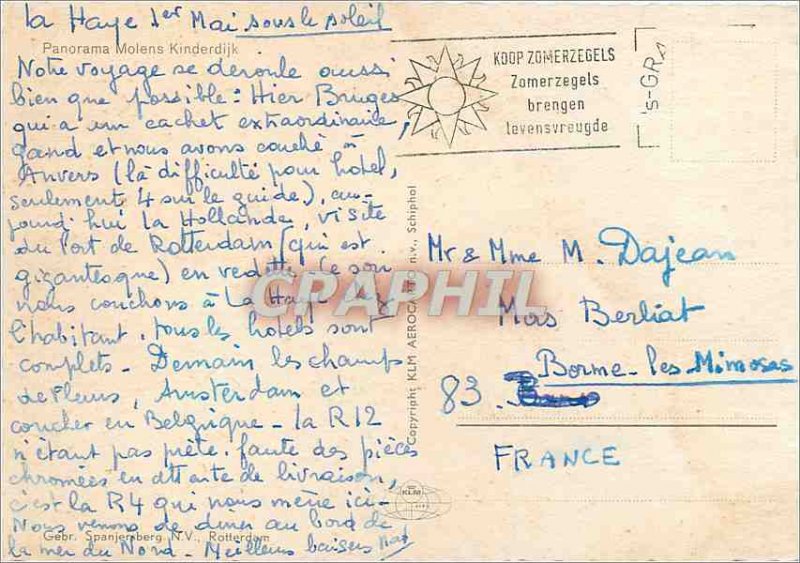 La Haye 1er Mai sous le soleil
Panorama Molens Kinderdijk
Notre voyage se déroule aussi
bien que possible : Hier Bruges
qui a un cachet extraordinaire,
gand et nous avons couché à
Anvers (là difficulté pour hotel,
seulement 4 sur le guide), au-
jourd'hui la Hollande, visite
du Port de Rotterdam (qui est
gigantesque) en vedette. Ce soir
nous couchons à La Haye chez
l'habitant. tous les hotels sont
complets - Demain les champs
de fleurs, Amsterdam et
coucher en Belgique - La R12
n'étant pas prête. faute des pièces
chromées en attente de livraison,
c'est la R4 qui nous mène ici -
Nous venons de diner au bord de
la mer du Nord - Meilleurs baisers
Gebr. Spanjersberg N.V., Rotterdam
KOOP ZOMERZEGELS
Zomerzegels
brengen
levensvreugde
's-GRA
Copyright KLM AEROCARTO n.v., Schiphol
KLM
CPAPHIL
Mr & Mme M. Dajean
Mas Berliat
Borme-les Mimosas
83
FRANCE